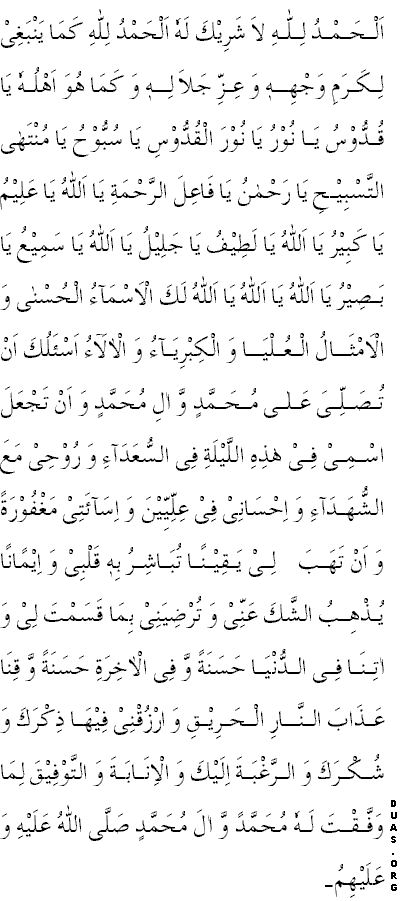 اَلْحَمْدُ لِلّٰهِ لاَ شَرِيْكَ لَهٗ اَلْحَمْدُ لِلّٰهِ كَمَا يَنْبَغِىْ
لِكَرَمِ وَجْهِهٖ وَ عِزِّ جَلاَ لِهٖ وَ كَمَا هُوَ اَهْلُهٗ يَا
قُدُّوْسُ يَا نُوْرُ يَا نُوْرَ الْقُدُّوْسِ يَا سُبُّوْحُ يَا مُنْتَهٰى
التَّسْبِيْحِ يَا رَحْمٰنُ يَا فَاعِلَ الرَّحْمَةِ يَا اَللهُ يَا عَلِيْمُ
يَا كَبِيْرُ يَا اَللهُ يَا لَطِيْفُ يَا جَلِيْلُ يَا اَللهُ يَا سَمِيْعُ يَا
بَصِيْرُ يَا اَللهُ يَا اَللهُ يَا اَللهُ لَكَ الْاَسْمَآءُ الْحُسْنٰى وَ
الْاَمْثَالُ الْعُلْيَا وَ الْكِبْرِيَآءُ وَ الْاٰلَآءُ اَسْئَلُكَ اَنْ
تُصَلِّىَ عَلٰى مُحَمَّدٍ وَّ اٰلِ مُحَمَّدٍ وَ اَنْ تَجْعَلَ
اسْمِىْ فِىْ هٰذِهِ اللَّيْلَةِ فِى السُّعَدَآءِ وَ رُوْحِىْ مَعَ
الشُّهَدَآءِ وَ اِحْسَانِىْ فِىْ عِلِّيِّيْنَ وَ اِسَآئَتِىْ مَغْفُوْرَةً
وَ اَنْ تَهَبَ لِىْ يَقِيْنًا تُبَاشِرُ بِهٖ قَلْبِىْ وَ اِيْمَانًا
يُذْهِبُ الشَّكَ عَنِّىْ وَ تُرْضِيَنِىْ بِمَا قَسَمْتَ لِىْ وَ
اٰتِنَا فِى الدُّنْيَا حَسَنَةً وَّ فِى الْاٰخِرَةِ حَسَنَةً وَّ قِنَا
عَذَابَ النَّارِ الْحَرِيْقِ وَ ارْزُقْنِىْ فِيْهَا ذِكْرَكَ وَ
شُكْرَكَ وَ الرَّغْبَةَ اِلَيْكَ وَ الْاِنَابَةَ وَ التَّوْفِيْقَ لِمَا
وَفَّقْتَ لَهٗ مُحَمَّدً وَّ اٰلَ مُحَمَّدٍ صَلَّى اللهُ عَلَيْهِ وَ
عَلَيْهِمُ۔
DUAS.ORG